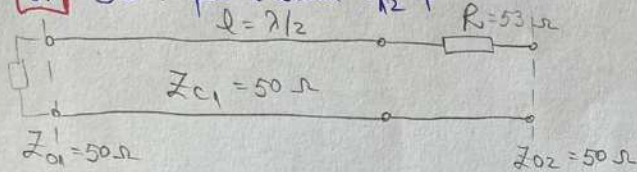 l = λ/2
R = 53 Ω
Zc₁ = 50 Ω
Z₀₁ = 50 Ω
Z₀₂ = 50 Ω